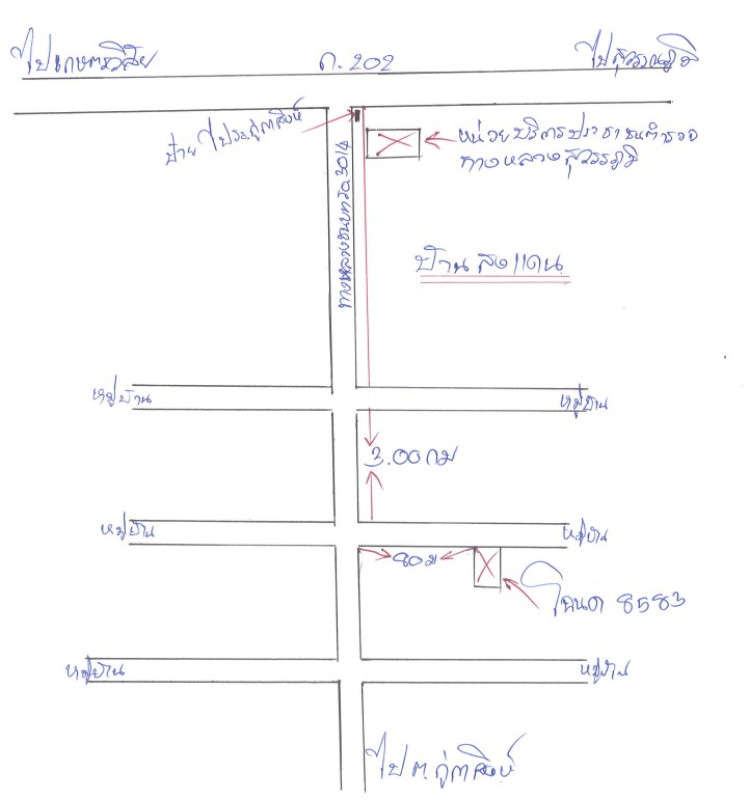 ไปเกษตรวิสัย
ถ.202
ไปสุวรรณภูมิ
ป้ายไประกู่กาสิงห์
หน่วยบริการประชาชนตำรวจ
ทางหลวงสุวรรณภูมิ
ทางหลวงชนบทรอ3014
บ้านสองแดน
หมู่บ้าน
หมู่บ้าน
3.00 กม
หมู่บ้าน
หมู่บ้าน
80 ม
โฉนด 8583
หมู่บ้าน
หมู่บ้าน
ไป ต.กู่กาสิงห์